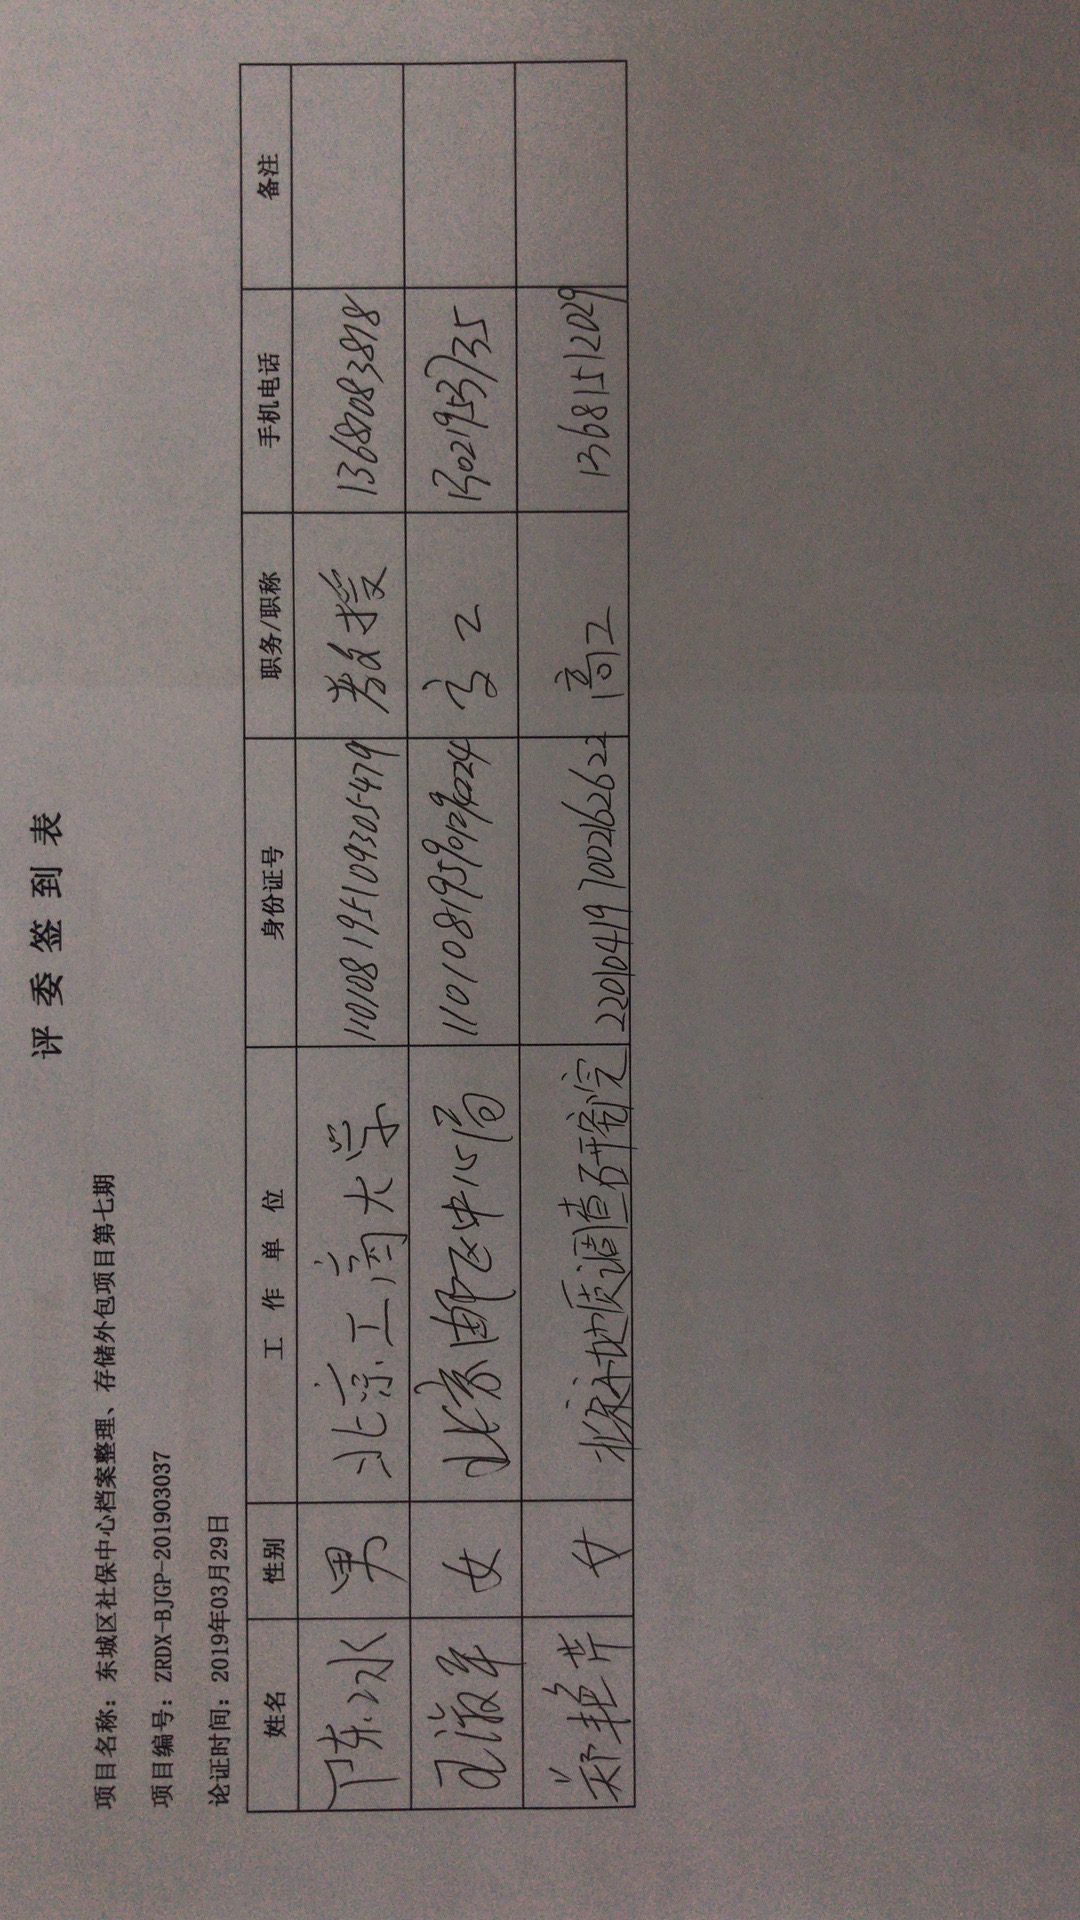 评委签到表
项目名称：东城区社保中心档案整理、存储外包项目第七期
项目编号：ZRDX-BJGP-201903037
论证时间：2019年03月29日
姓名 性别 工作单位 身份证号 职务/职称 手机电话 备注
陈冰 男 北京工商大学 110108195109305479 教授 13681083818
王淑军 女 北京邮区中心局 高工
郑艳芹 女 北京市地质调查研究院 220104197002162622 高工 13681512029